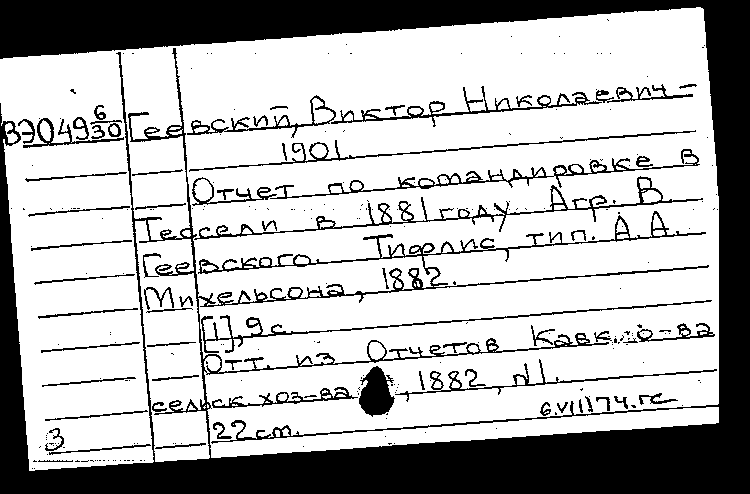 ВЭ049 6/30 Геевский, Виктор Николаевич –
1901.
Отчет по командировке в
Тессели в 1881 году. Агр. В.
Геевского. Тифлис, тип. А.А.
Михельсона, 1882.
[1], 9 с.
Отт. из Отчетов Кавк. о-ва
сельск хоз-ва, 1882, N1.
6.VIII 74. гс
3 22 cm.